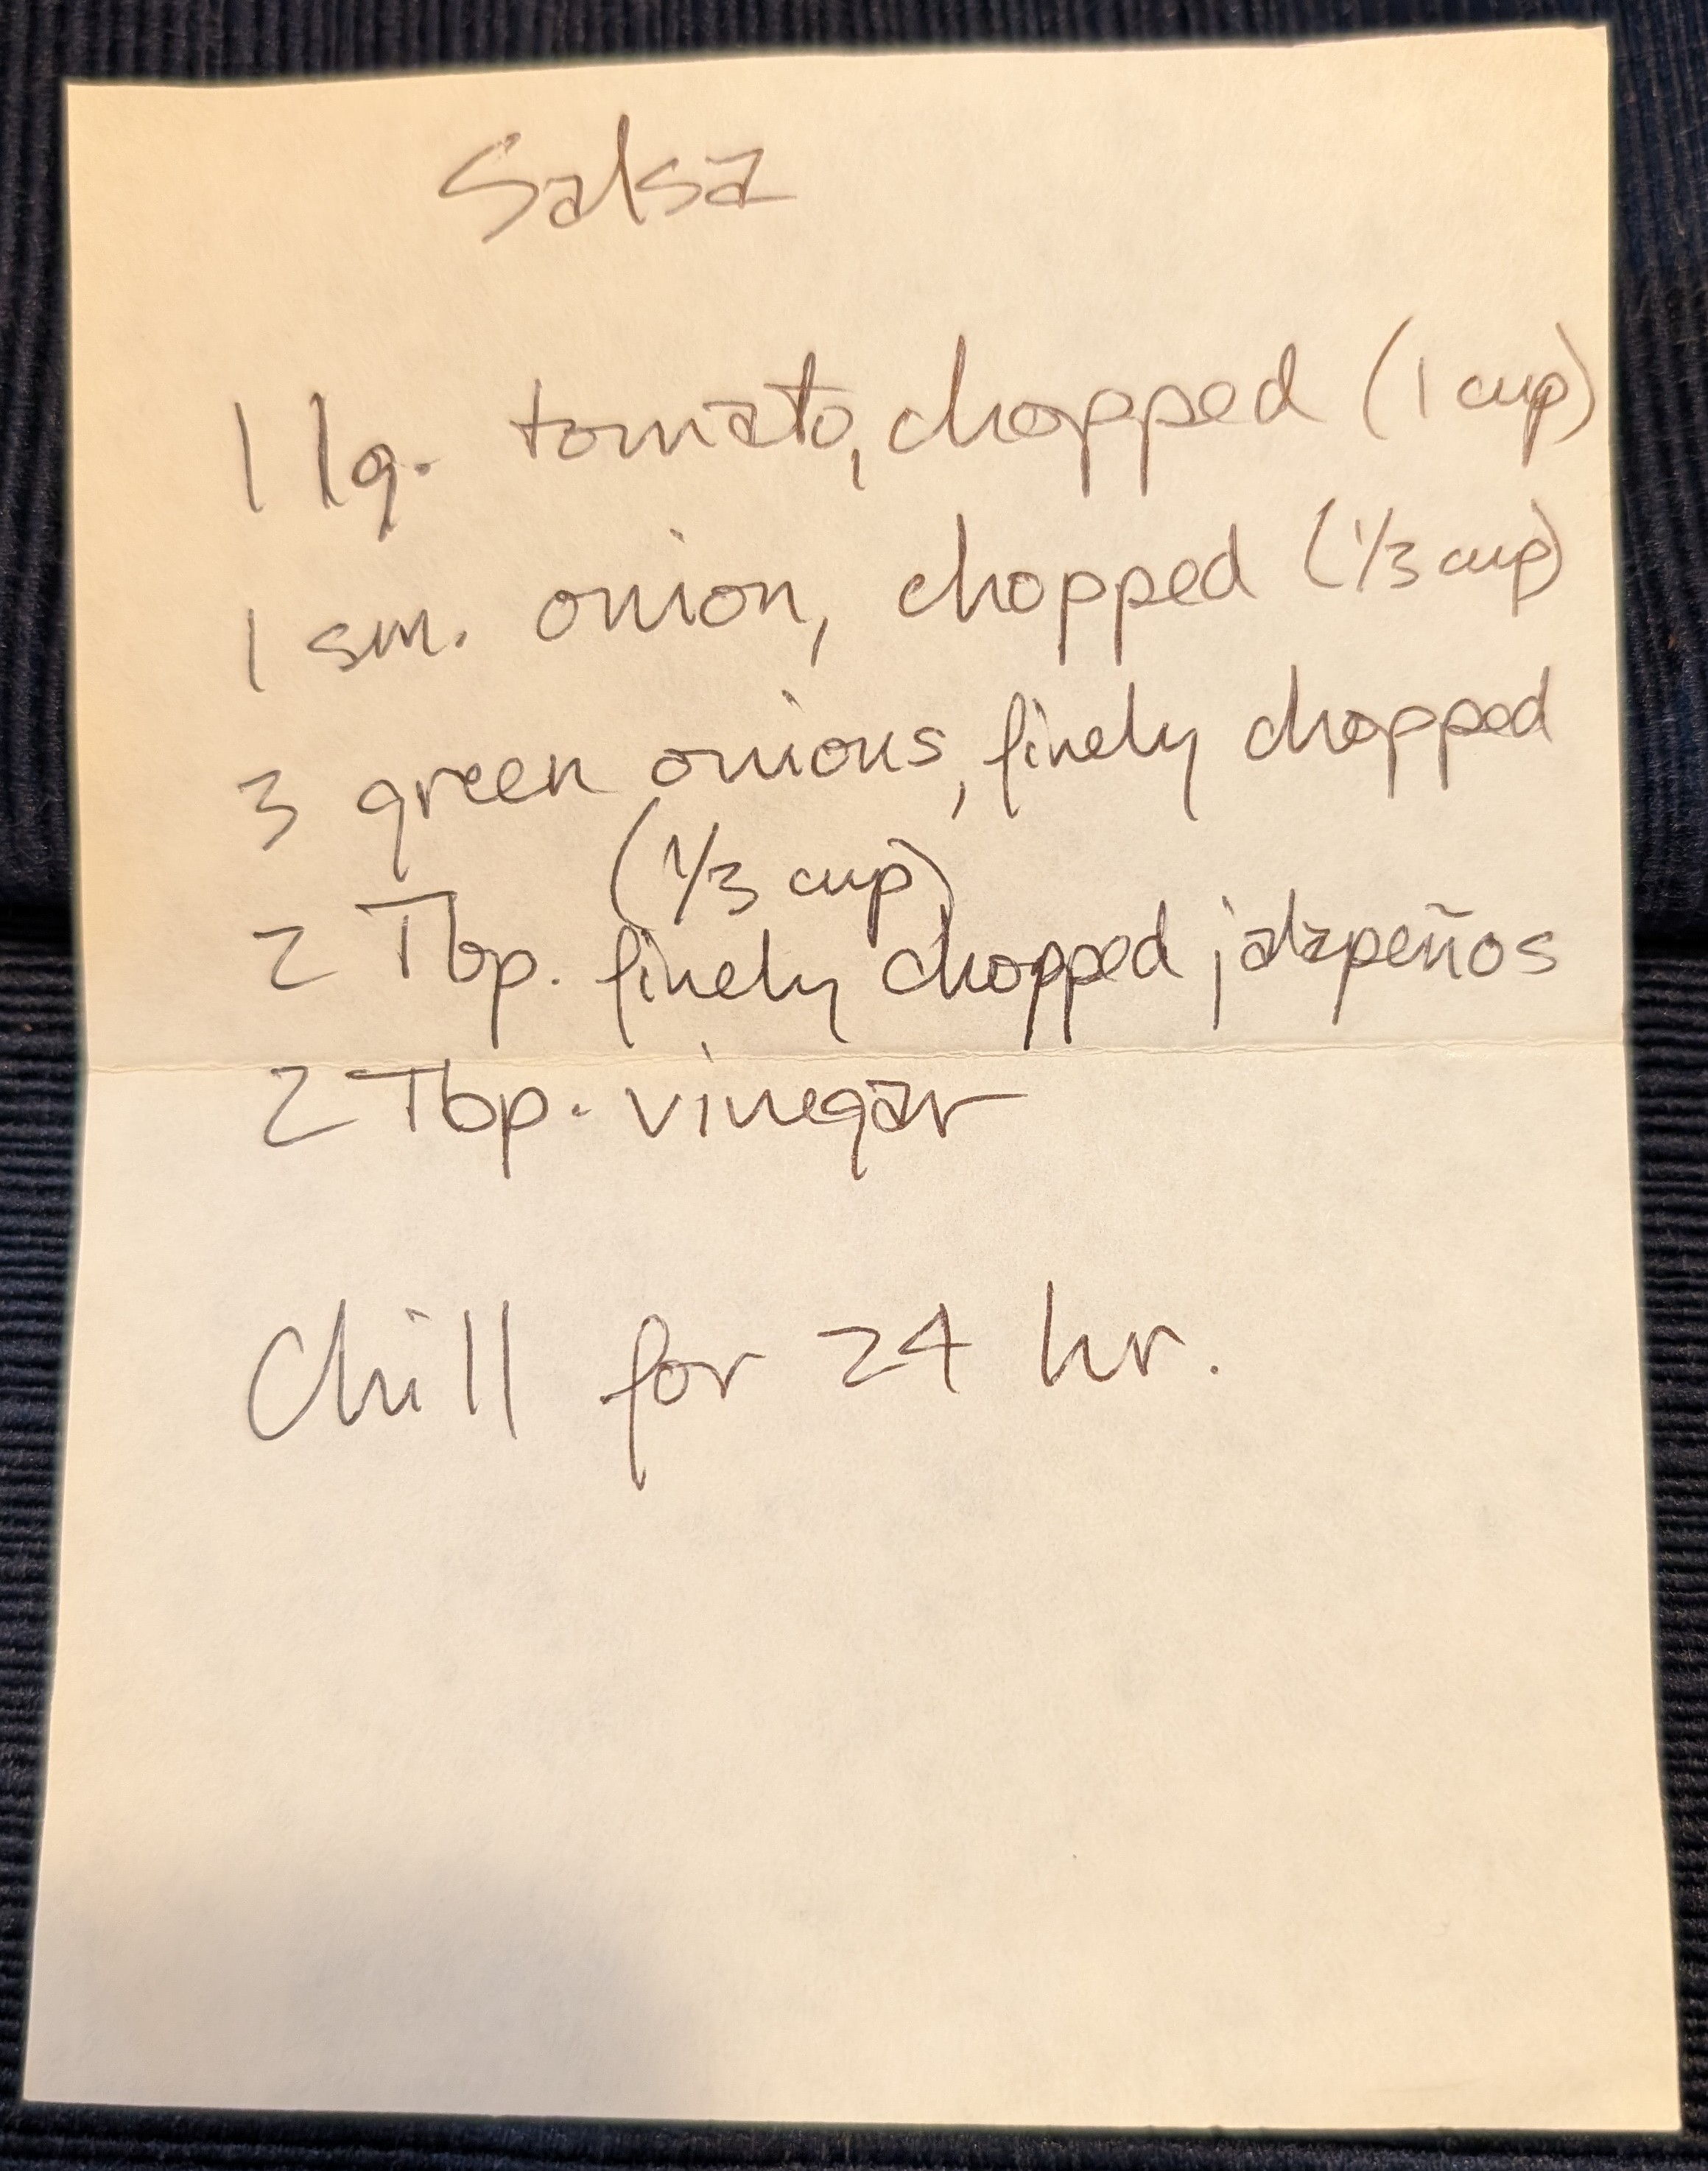 Salsa
1 lg. tomato, chopped (1 cup)
1 sm. onion, chopped (1/3 cup)
3 green onions, finely chopped
(1/3 cup)
2 Tbp. finely chopped jalapeños
2 Tbp. vinegar
Chill for 24 hr.